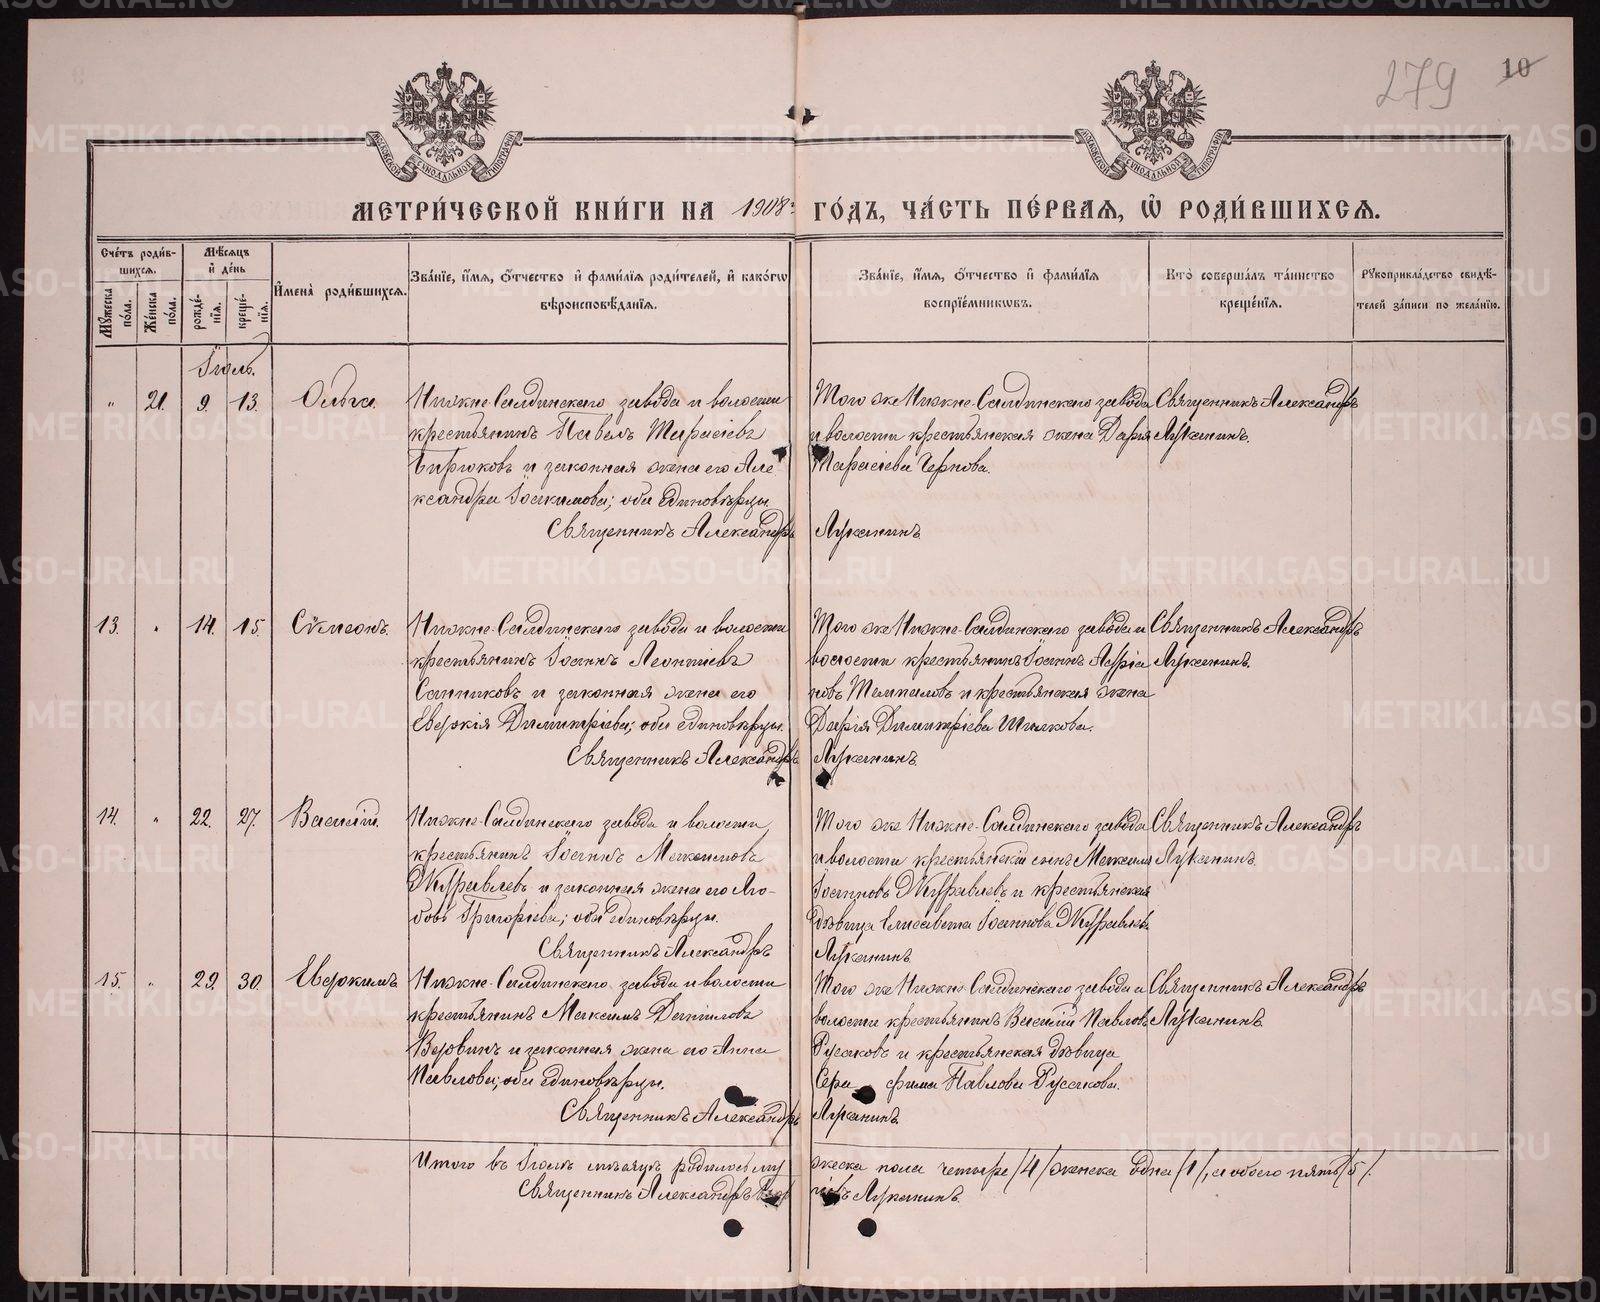 279 10
МЕТРИ́ЧЕСКОЙ КНИ́ГИ НА 1908й ГО́ДЪ, ЧА́СТЬ ПЕ́РВАѦ, Ѡ҆ РОДИ́ВШИХСѦ.
Сче́тъ роди́в-
шихсѧ.
Мꙋ́жеска по́ла.
Же́нска по́ла.
Мѣ́сѧцъ и҆ де́нь
рожде́-
нїѧ.
креще́-
нїѧ.
И҆мена̀ роди́вшихсѧ.
Зва́нїе, и҆́мѧ, ѻ҆́тчество и҆ фами́лїѧ роди́телей, и҆ како́гѡ
вѣроисповѣ́данїѧ.
Зва́нїе, и҆́мѧ, ѻ҆́тчество и҆ фами́лїѧ
воспрїе́мникѡвъ.
Кто̀ соверша́лъ та́инство
креще́нїѧ.
Рꙋкоприкла́дство свидѣ́-
телей за́писи по жела́нїю.
Іюль.
" 21. 9. 13. Ольга.
Нижне-Салдинскаго завода и волости
крестьянинъ Павелъ Тарасіевъ
Бирюковъ и законная жена его Але
ксандра Іоакимова; оба единовѣрцы.
Священникъ Александръ Луканинъ
Того же Нижне-Салдинскаго завода
и волости крестьянская жена Дарія
Тарасіева Чернова.
Священникъ Александръ
Луканинъ.
13. " 14. 15. Сѵмеонъ.
Нижне-Салдинскаго завода и волости
крестьянинъ Іоаннъ Леонтіевъ
Санниковъ и законная жена его
Евдокія Димитріева; оба единовѣрцы.
Священникъ Александръ Луканинъ.
Того же Нижне-Салдинскаго завода и
волости крестьянинъ Іоаннъ
новъ и крестьянская жена
Дарія Димитріева
Священникъ Александръ
Луканинъ.
14. " 22. 27. Василій.
Нижне-Салдинскаго завода и волости
крестьянинъ Іоаннъ Максимовъ
Журавлевъ и законная жена его Лю-
бовь Григоріева; оба единовѣрцы.
Священникъ Александръ Луканинъ
Того же Нижне-Салдинскаго завода
и волости крестьянскій сынъ Максимъ
Іоанновъ Журавлевъ и крестьянская
дѣвица Елисавета Іоаннова Журавлев.
Священникъ Александръ
Луканинъ.
15. " 29. 30. Евдокимъ
Нижне-Салдинскаго завода и волости
крестьянинъ Максимъ Даниловъ
и законная жена его Анна
Павлова; оба единовѣрцы.
Священникъ Александръ Луканинъ.
Того же Нижне-Салдинскаго завода и
волости крестьянинъ Василій Павловъ
Русаковъ и крестьянская дѣвица
Сера фима Павлова Русакова.
Священникъ Александръ
Луканинъ.
Итого въ Іюлѣ мѣсяцѣ родилось му жеска пола четыре /4/ женска одна /1/, а обоего пять /5/.
Священникъ Александръ Луканинъ.